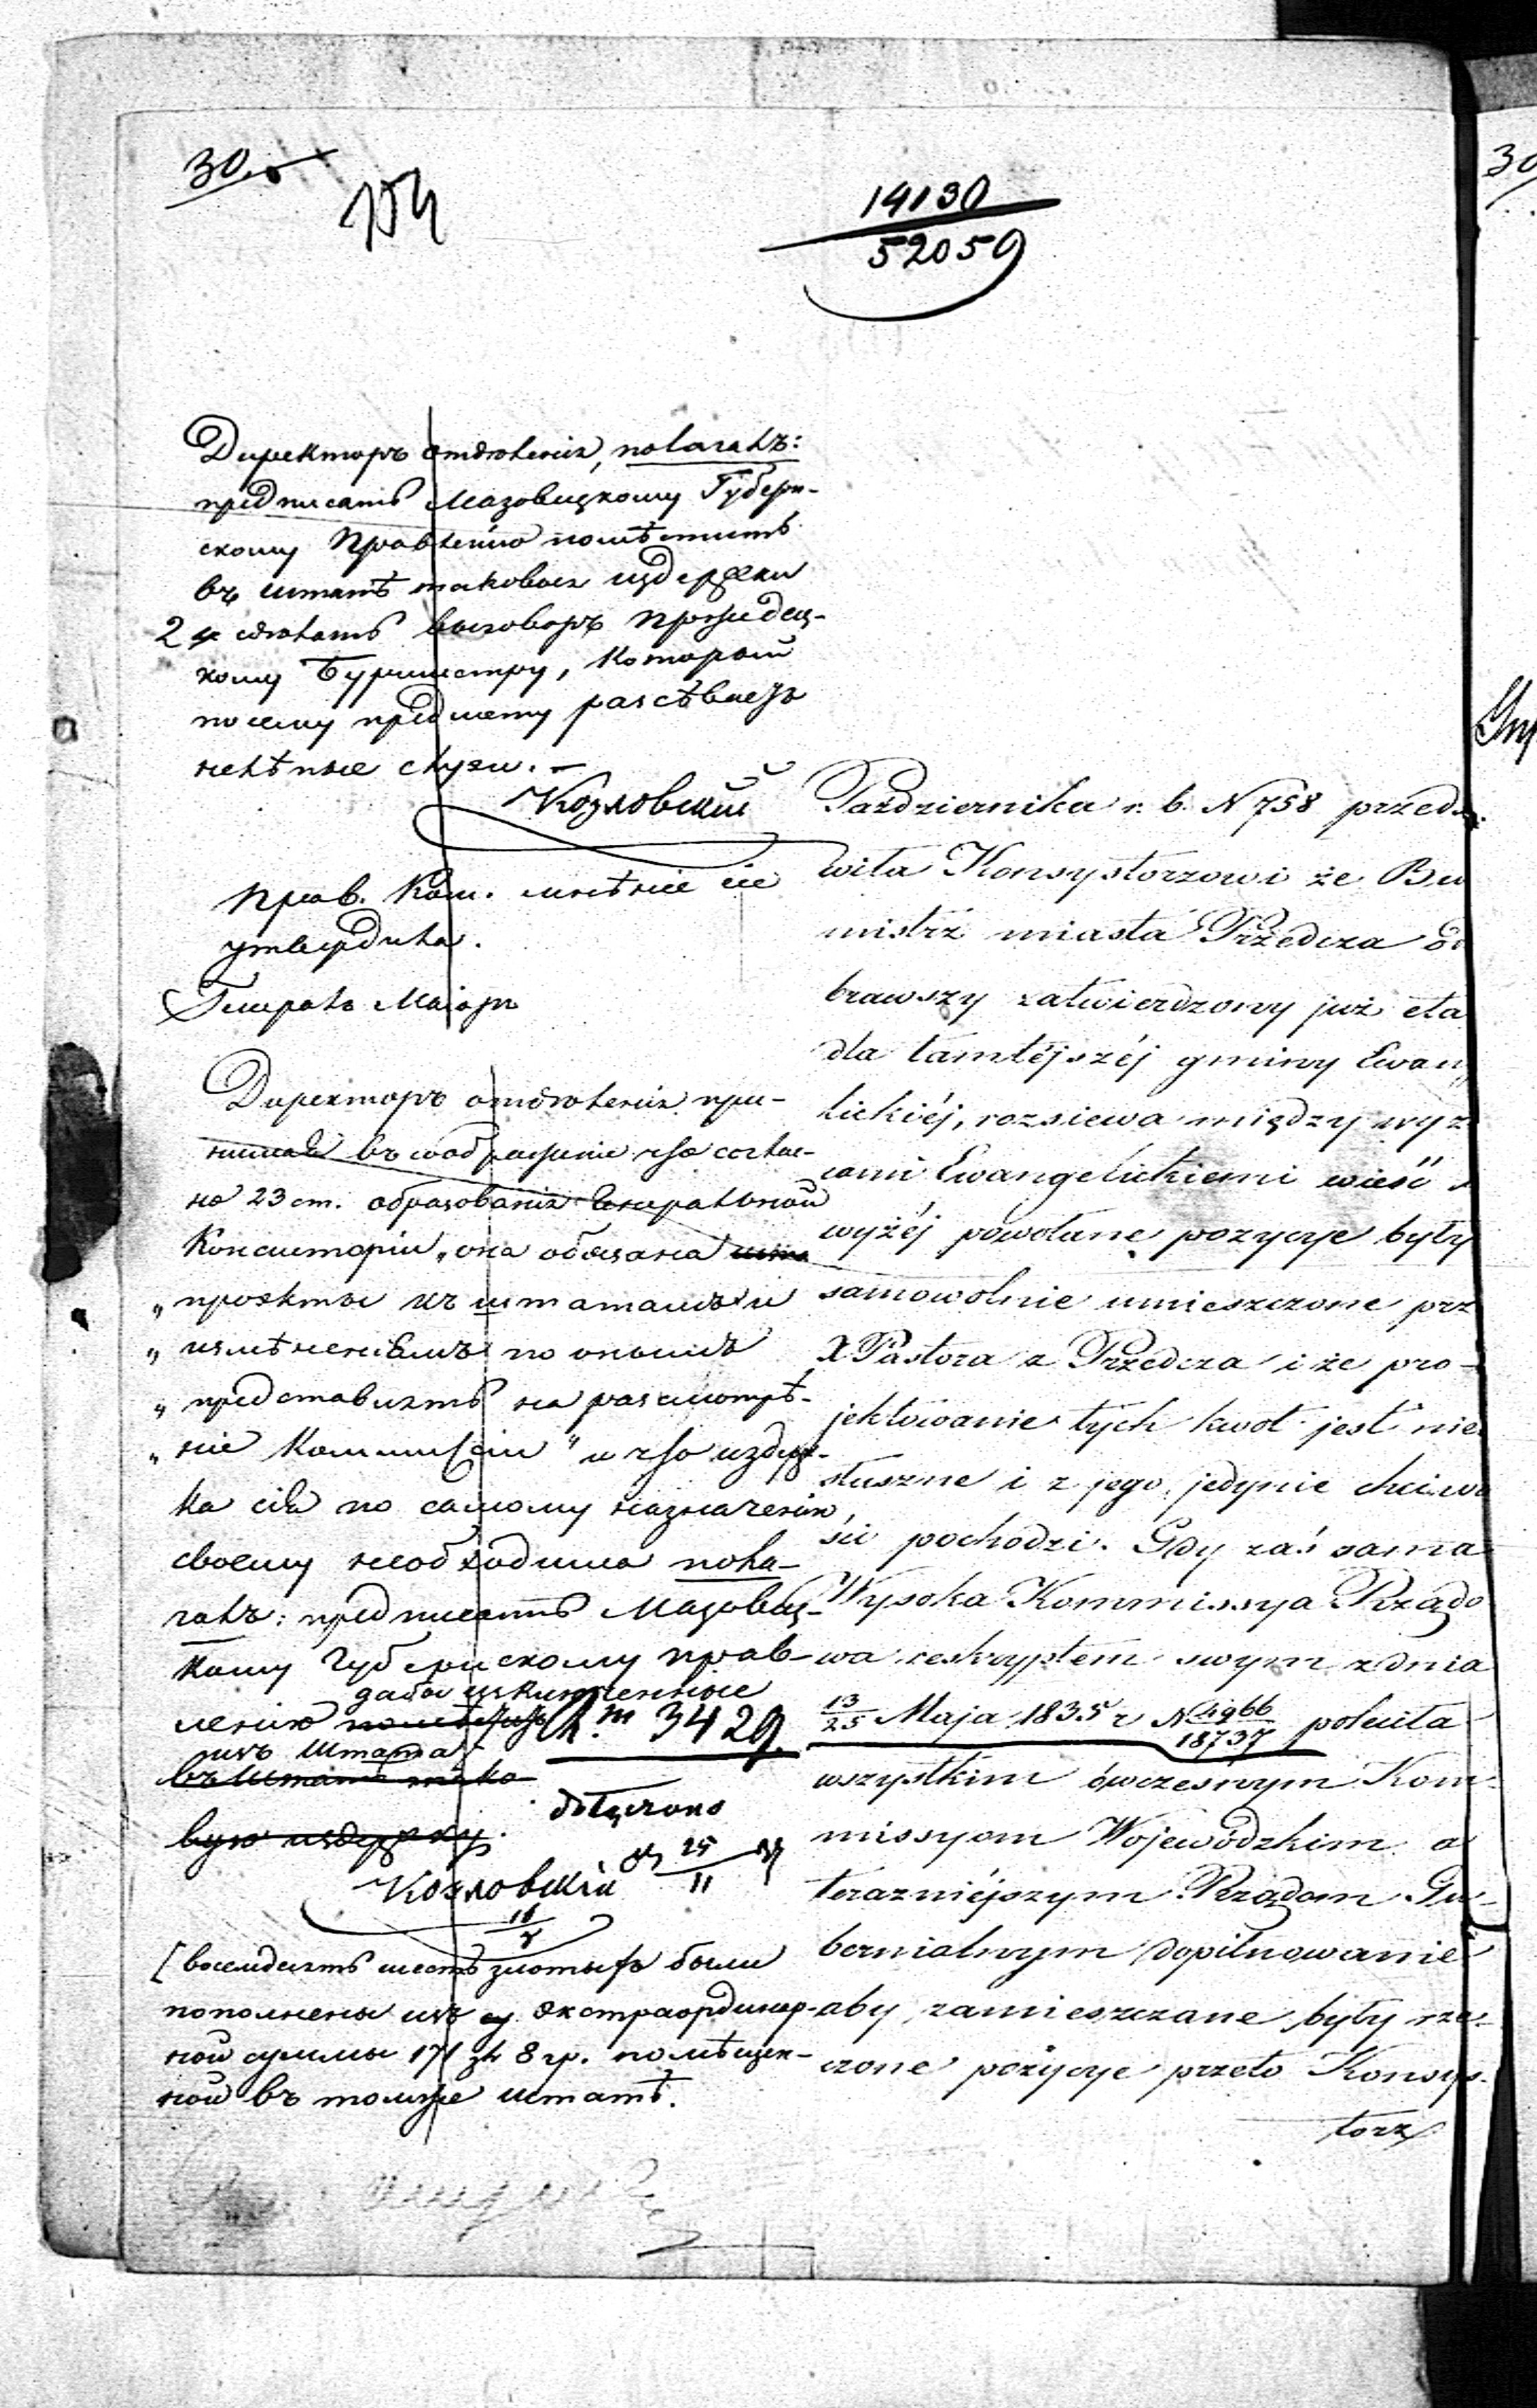 30.
154
14130
52059
Директоръ отдѣленія, полагалъ:
предписать Мазовецкому Губерн-
скому Правленію помѣстить
въ штатѣ таковыя издержки
2 сдѣлать выговоръ Пржедец-
кому Бурмистру, который
по сему предмету разсѣваетъ
нелѣпые слухи. —
Козловскій
Прав. Ком. мнѣніе сіе
утвердила.
Генералъ Маіоръ
Директоръ отдѣленія при-
нимая въ соображеніе что соглас-
но 23 ст. образованія Генеральной
Консисторіи „она обязана
„проэкты къ штатамъ и
„измѣненіямъ по онымъ
„представлять на разсмотрѣ-
„ніе Коммиссіи" и что издерж-
ка сія по самому назначенію
своему необходима пола-
галъ: предписать Мазовец-
кому Губернскому Прав-
дабы исключенные
ленію
изъ штата
въ штатѣ тако
вую издержку.
Козловскій
[восемдесятъ шесть злотыхъ были
пополнены изъ экстраординар-
ной суммы 171 зл 8 гр. помѣщен-
ной въ томже штатѣ.
3429.
dołączono
25
11
Października r. b. N 758 przed
wiła Konsystorzowi że Bu
mistrz miasta Przedcza o
brawszy zatwierdzony już eta
dla tamtéjszéj gminy Ewan
lickiéj, rozsiewa między wyz
cami Ewangelickiemi wieść
wyżéj powołane pozycye były
samowolnie umieszczone prz
X Pastora z Przedcza i że pro-
jektowanie tych kwot jest nie
słuszne i z jego jedynie chciwo
ści pochodzi. Gdy zaś sama
Wysoka Kommissya Rządo
wa reskryptem swym z dnia
13/25 Maja 1835 r N 4966/18737 poleciła
wszystkim ówczesnym Kom-
missyom Wojewódzkim a
teraźniéjszym Rządom Gu-
bernialnym dopilnowanie
aby zamieszczane były rze-
czone pozycye przeto Konsys-
torz